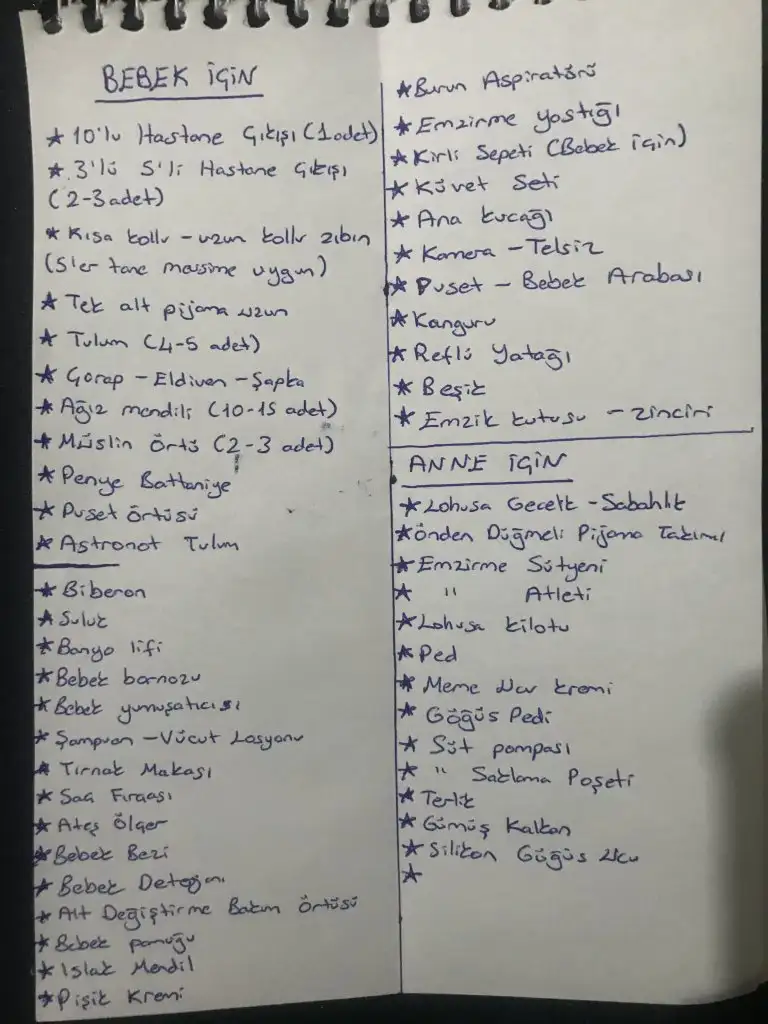 BEBEK İÇİN
★ 10'lu Hastane Çıkışı (1 adet)
★ 3'lü 5'li Hastane Çıkışı
(2-3 adet)
★ Kısa kollu - uzun kollu zıbın
(5'er tane mevsime uygun)
★ Tek alt pijama uzun
★ Tulum (4-5 adet)
★ Çorap - Eldiven - Şapka
★ Ağız mendili (10-15 adet)
★ Müslin örtü (2-3 adet)
★ Penye Battaniye
★ Puset örtüsü
★ Astronot Tulum
★ Biberon
★ Suluk
★ Banyo lifi
★ Bebek bornozu
★ Bebek yumuşatıcısı
★ Şampuan - Vücut Losyonu
★ Tırnak Makası
★ Saç Fırçası
★ Ateş Ölçer
★ Bebek Bezi
★ Bebek Deterjanı
★ Alt Değiştirme Bakım Örtüsü
★ Bebek pamuğu
★ Islak Mendil
★ Pişik Kremi
★ Burun Aspiratörü
★ Emzirme yastığı
★ Kirli Sepeti (Bebek için)
★ Küvet Seti
★ Ana kucağı
★ Kamera - Telsiz
★ Puset - Bebek Arabası
★ Kanguru
★ Reflü Yatağı
★ Beşik
★ Emzik kutusu - zinciri
ANNE İÇİN
★ Lohusa Gecelik - Sabahlık
★ Önden Düğmeli Pijama Takımı
★ Emzirme Sütyeni
★ " Atleti
★ Lohusa kilotu
★ Ped
★ Meme Ucu kremi
★ Göğüs Pedi
★ Süt pompası
★ " Saklama Poşeti
★ Terlik
★ Gümüş Kalkan
★ Silikon Göğüs Ucu
★